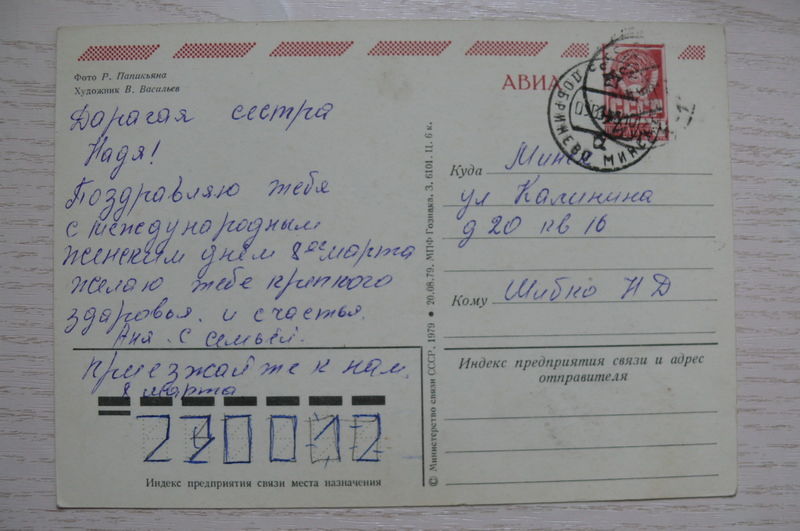 Фото Р. Папикьяна
Художник В. Васильев
АВИА
СССР
ДОБРИНЕВО МИНСК
Дарагая сестра
Надя!
Поздравляю тебя
с международным
женским днём 8ое марта
желаю тебе крипкого
здаровья. и счастья.
Аня. с семьёй.
Приезжайте к нам.
8 марта
220012
Индекс предприятия связи места назначения
© Министерство связи СССР, 1979 ● 20.08.79. МПФ Гознака, З. 6101. Ц. 6 к.
Куда Минск
ул Калинина
д 20 кв 16
Кому Шибко Н Д
Индекс предприятия связи и адрес
отправителя